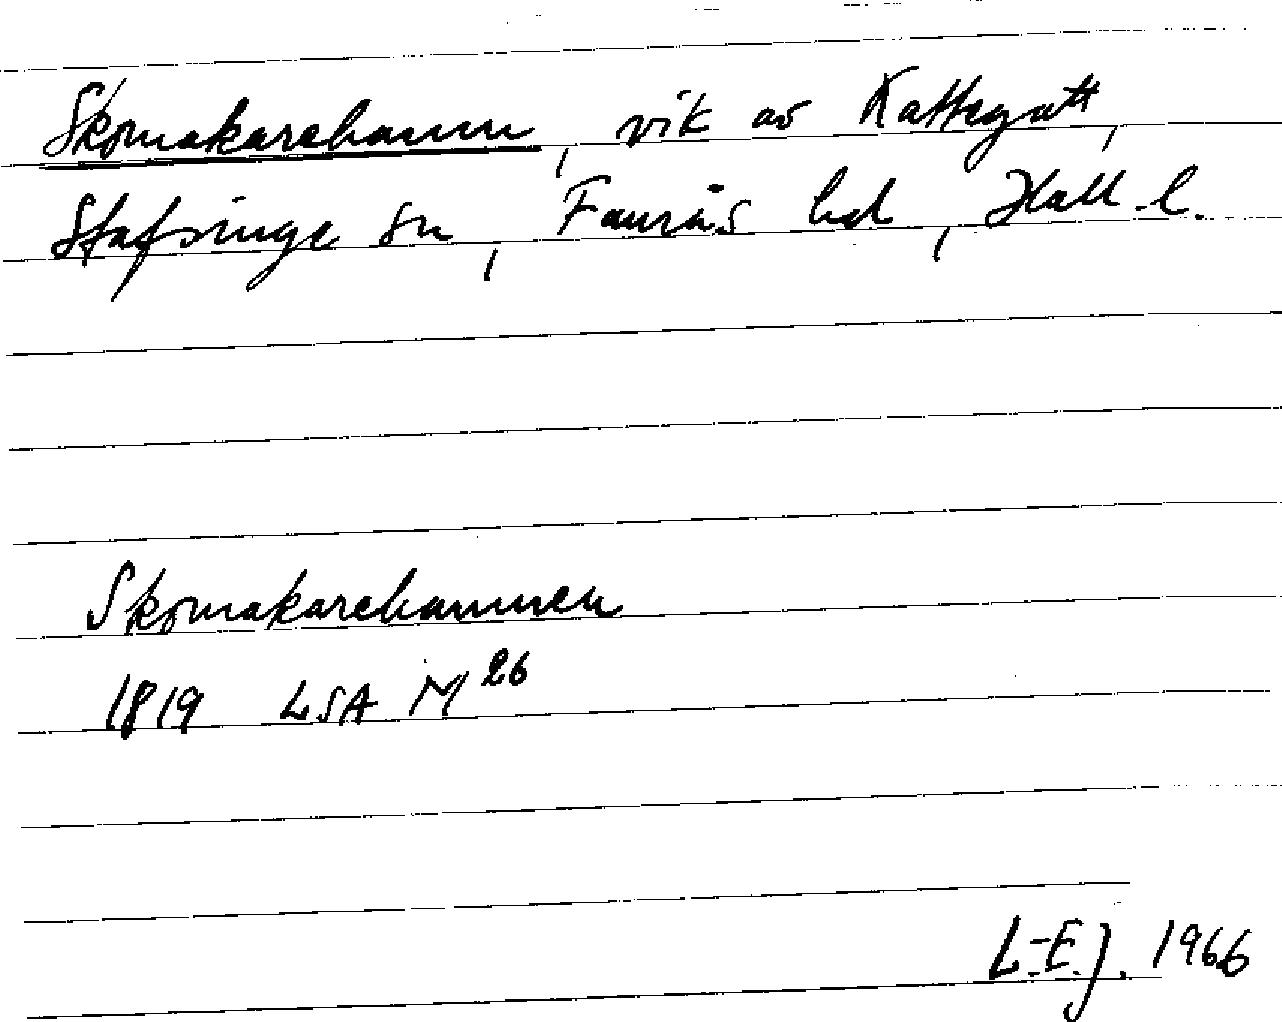 Skomakarehamn, vik av Kattegatt,
Stafsinge sn, Faurås hd, Hall. l.
Skomakarehamnen
1819 LSA M 26
L-E.J. 1966